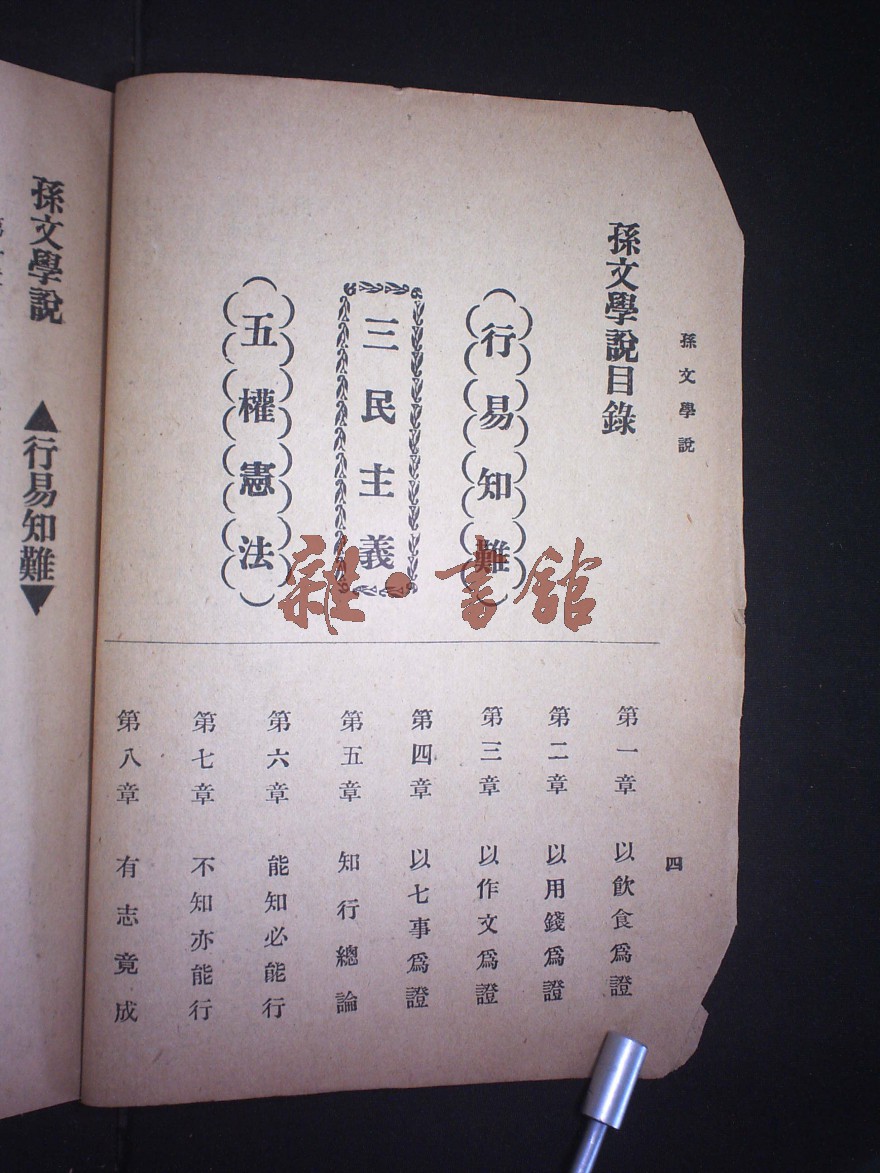 孫文學說
四
孫文學說目錄
行易知難
三民主義
五權憲法
第一章 以飲食爲證
第二章 以用錢爲證
第三章 以作文爲證
第四章 以七事爲證
第五章 知行總論
第六章 能知必能行
第七章 不知亦能行
第八章 有志竟成
孫文學說
▲行易知難▼
雜·書館